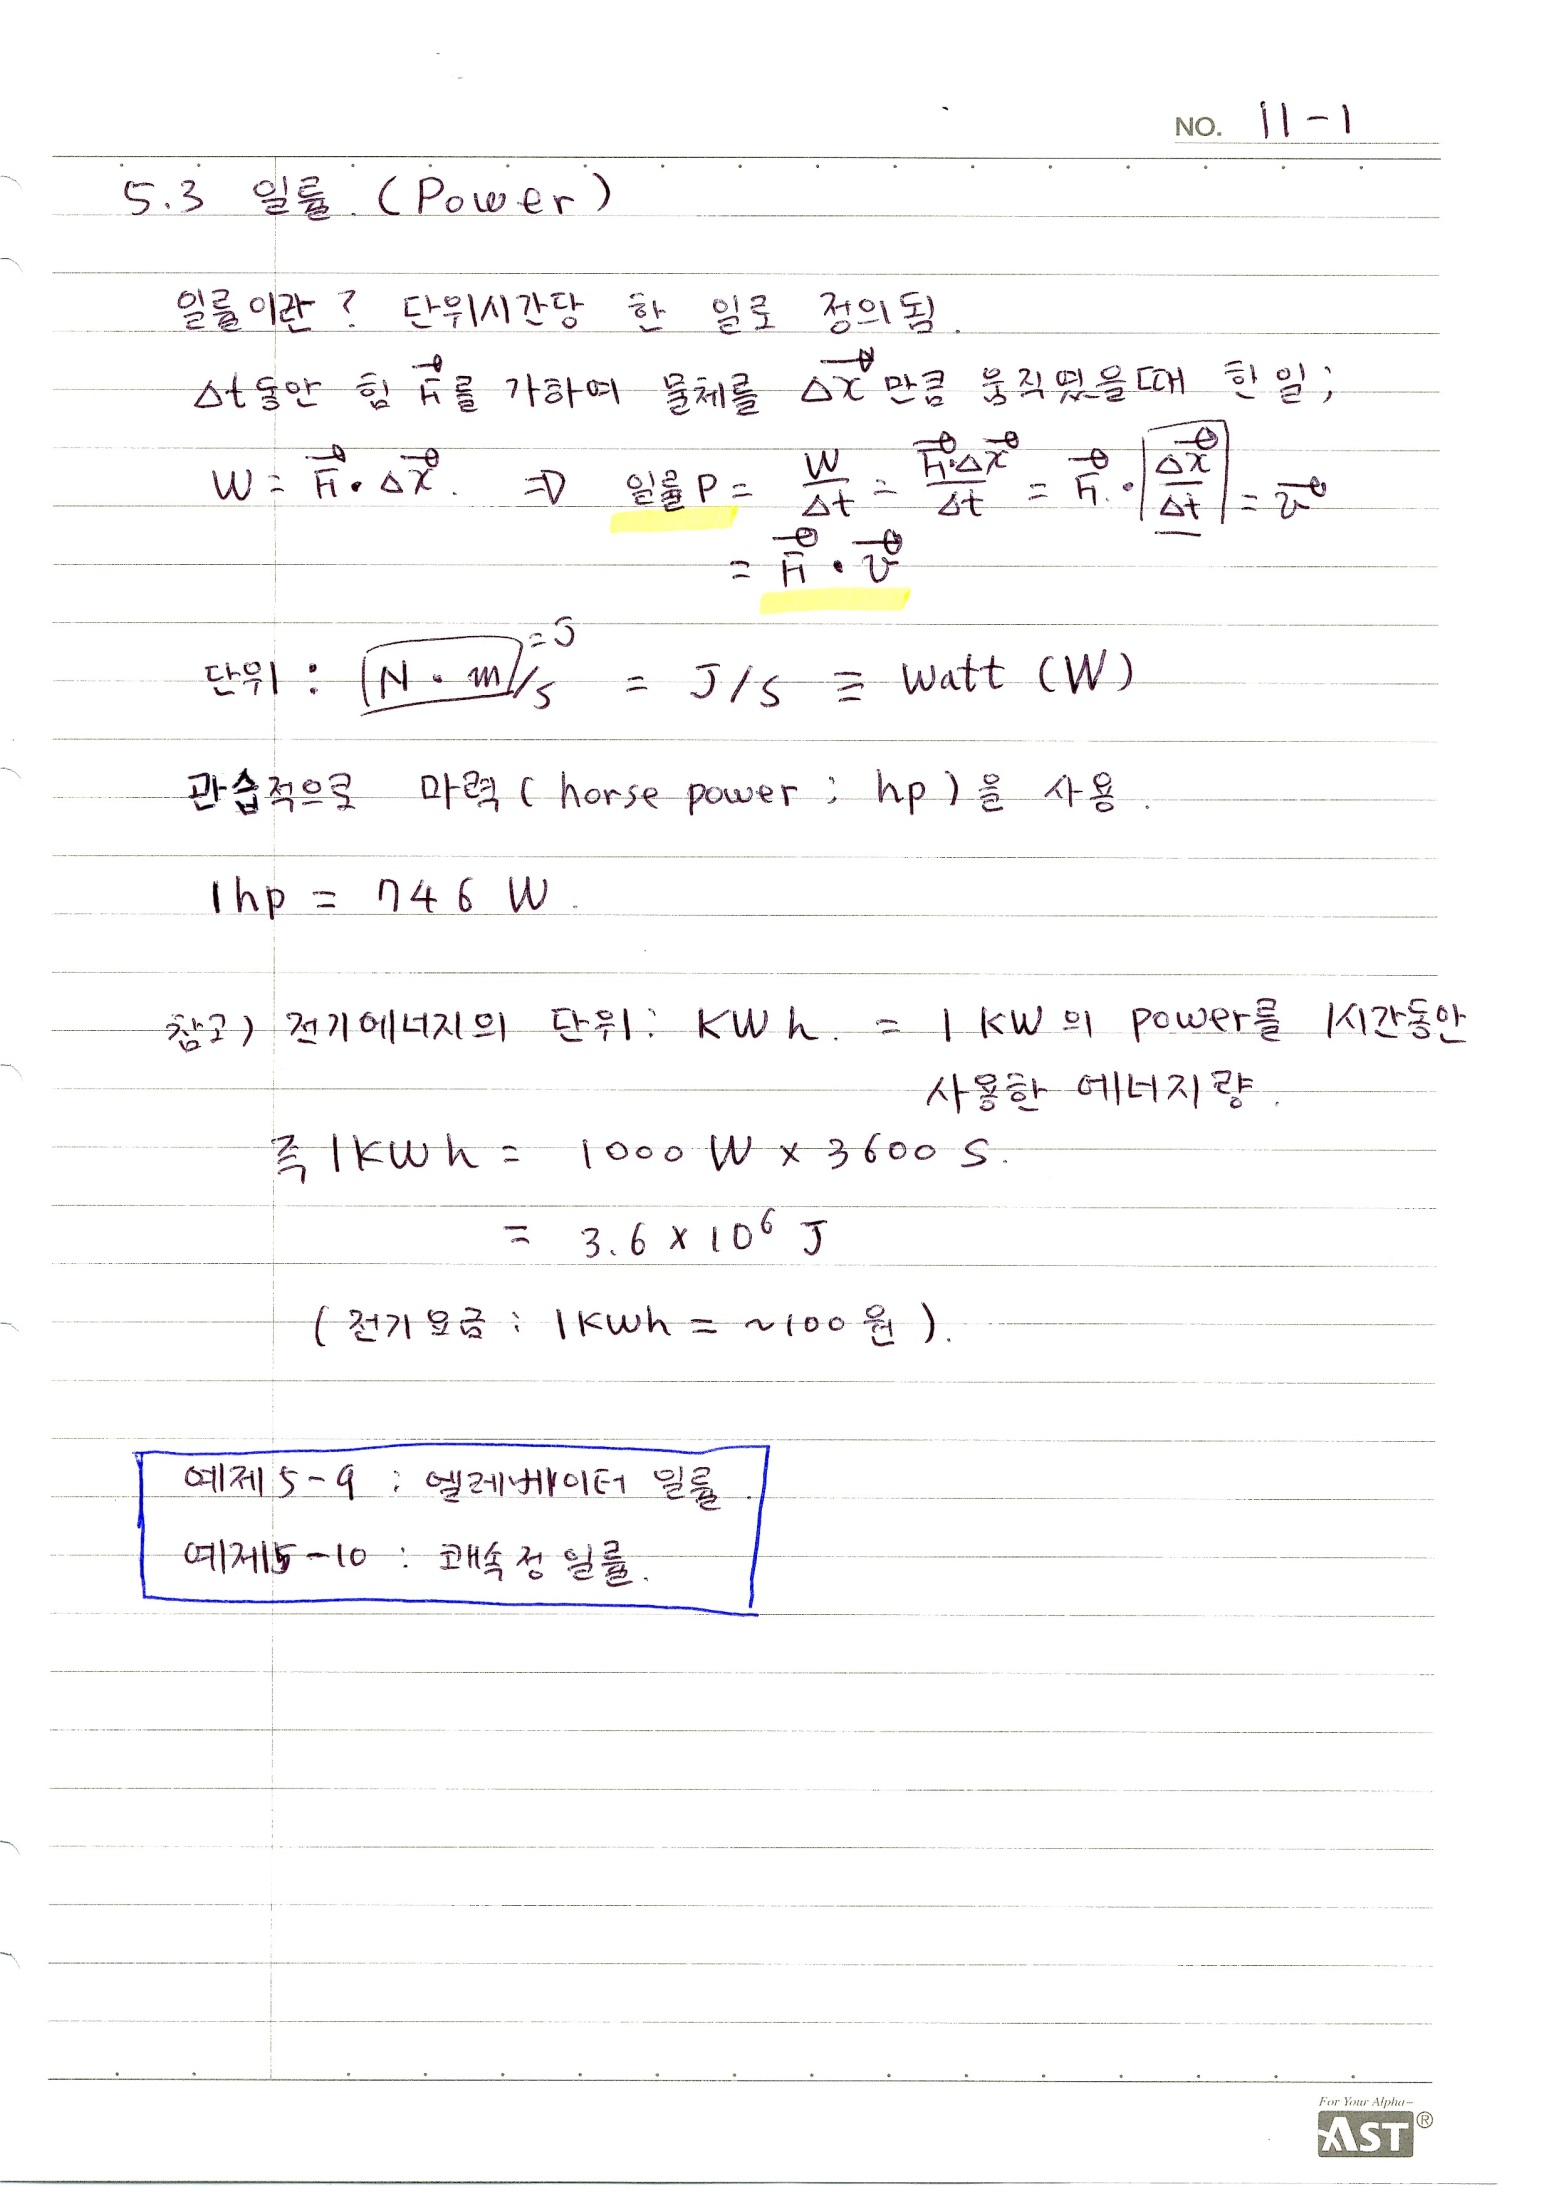 NO. 11-1
5.3 일률. (Power)
일률이란? 단위시간당 한 일로 정의됨.
Δt동안 힘 F⃗를 가하여 물체를 Δx⃗만큼 움직였을때 한일;
W = F⃗·Δx⃗. ⇒ 일률 P = W/Δt = F⃗·Δx⃗/Δt = F⃗·Δx⃗/Δt = v⃗
= F⃗·v⃗
단위: N·m/s = J/s ≡ Watt (W)
=J
관습적으로 마력(horse power; hp)을 사용.
1hp = 746 W.
참고) 전기에너지의 단위: KWh. = 1KW의 power를 1시간동안
사용한 에너지량.
즉 1KWh = 1000 W × 3600 S.
= 3.6 × 10⁶ J
(전기요금: 1KWh = ~100원).
예제5-9 : 엘레베이터 일률.
예제5-10 : 쾌속정 일률.
For Your Alpha-
AST®